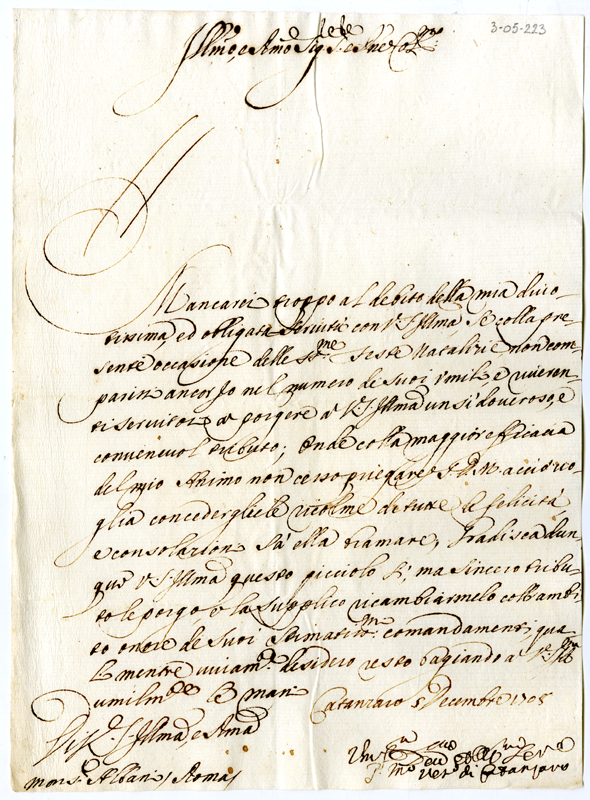 3-05-223
Illmo, e Rmo Sig.
Mancarei troppo al debito della mia divo-
tissima ed obligata servitù con V.S. Illma se colla pre-
sente occasione delle Sme feste Natalizie non com-
parissi ancor Io nel numero de suoi umili, e riveren-
ti servitori a porgere a V.S. Illma un sì doveroso, e
convenevol tributo; Onde colla maggior efficacia
del mio Animo non cesso priegare S.D.M. acciò vo-
glia concederglele ricolme di tutte le felicità,
e consolazioni sà ella bramare, Gradisca dun-
que V.S. Illma questo picciolo sì, ma sincero tribu-
to le porgo e la supplico ricambiarmelo coll'ambi-
to onore de suoi stimatissmi comandamenti, qua-
li mentre vivamte desidero resto baciando a V.S. Illma
umilmte le mani
Catanzaro 5 Decembre 1705
Di V.S. Illma, e Rma
Mons.r Albani, Roma
di Catanzaro